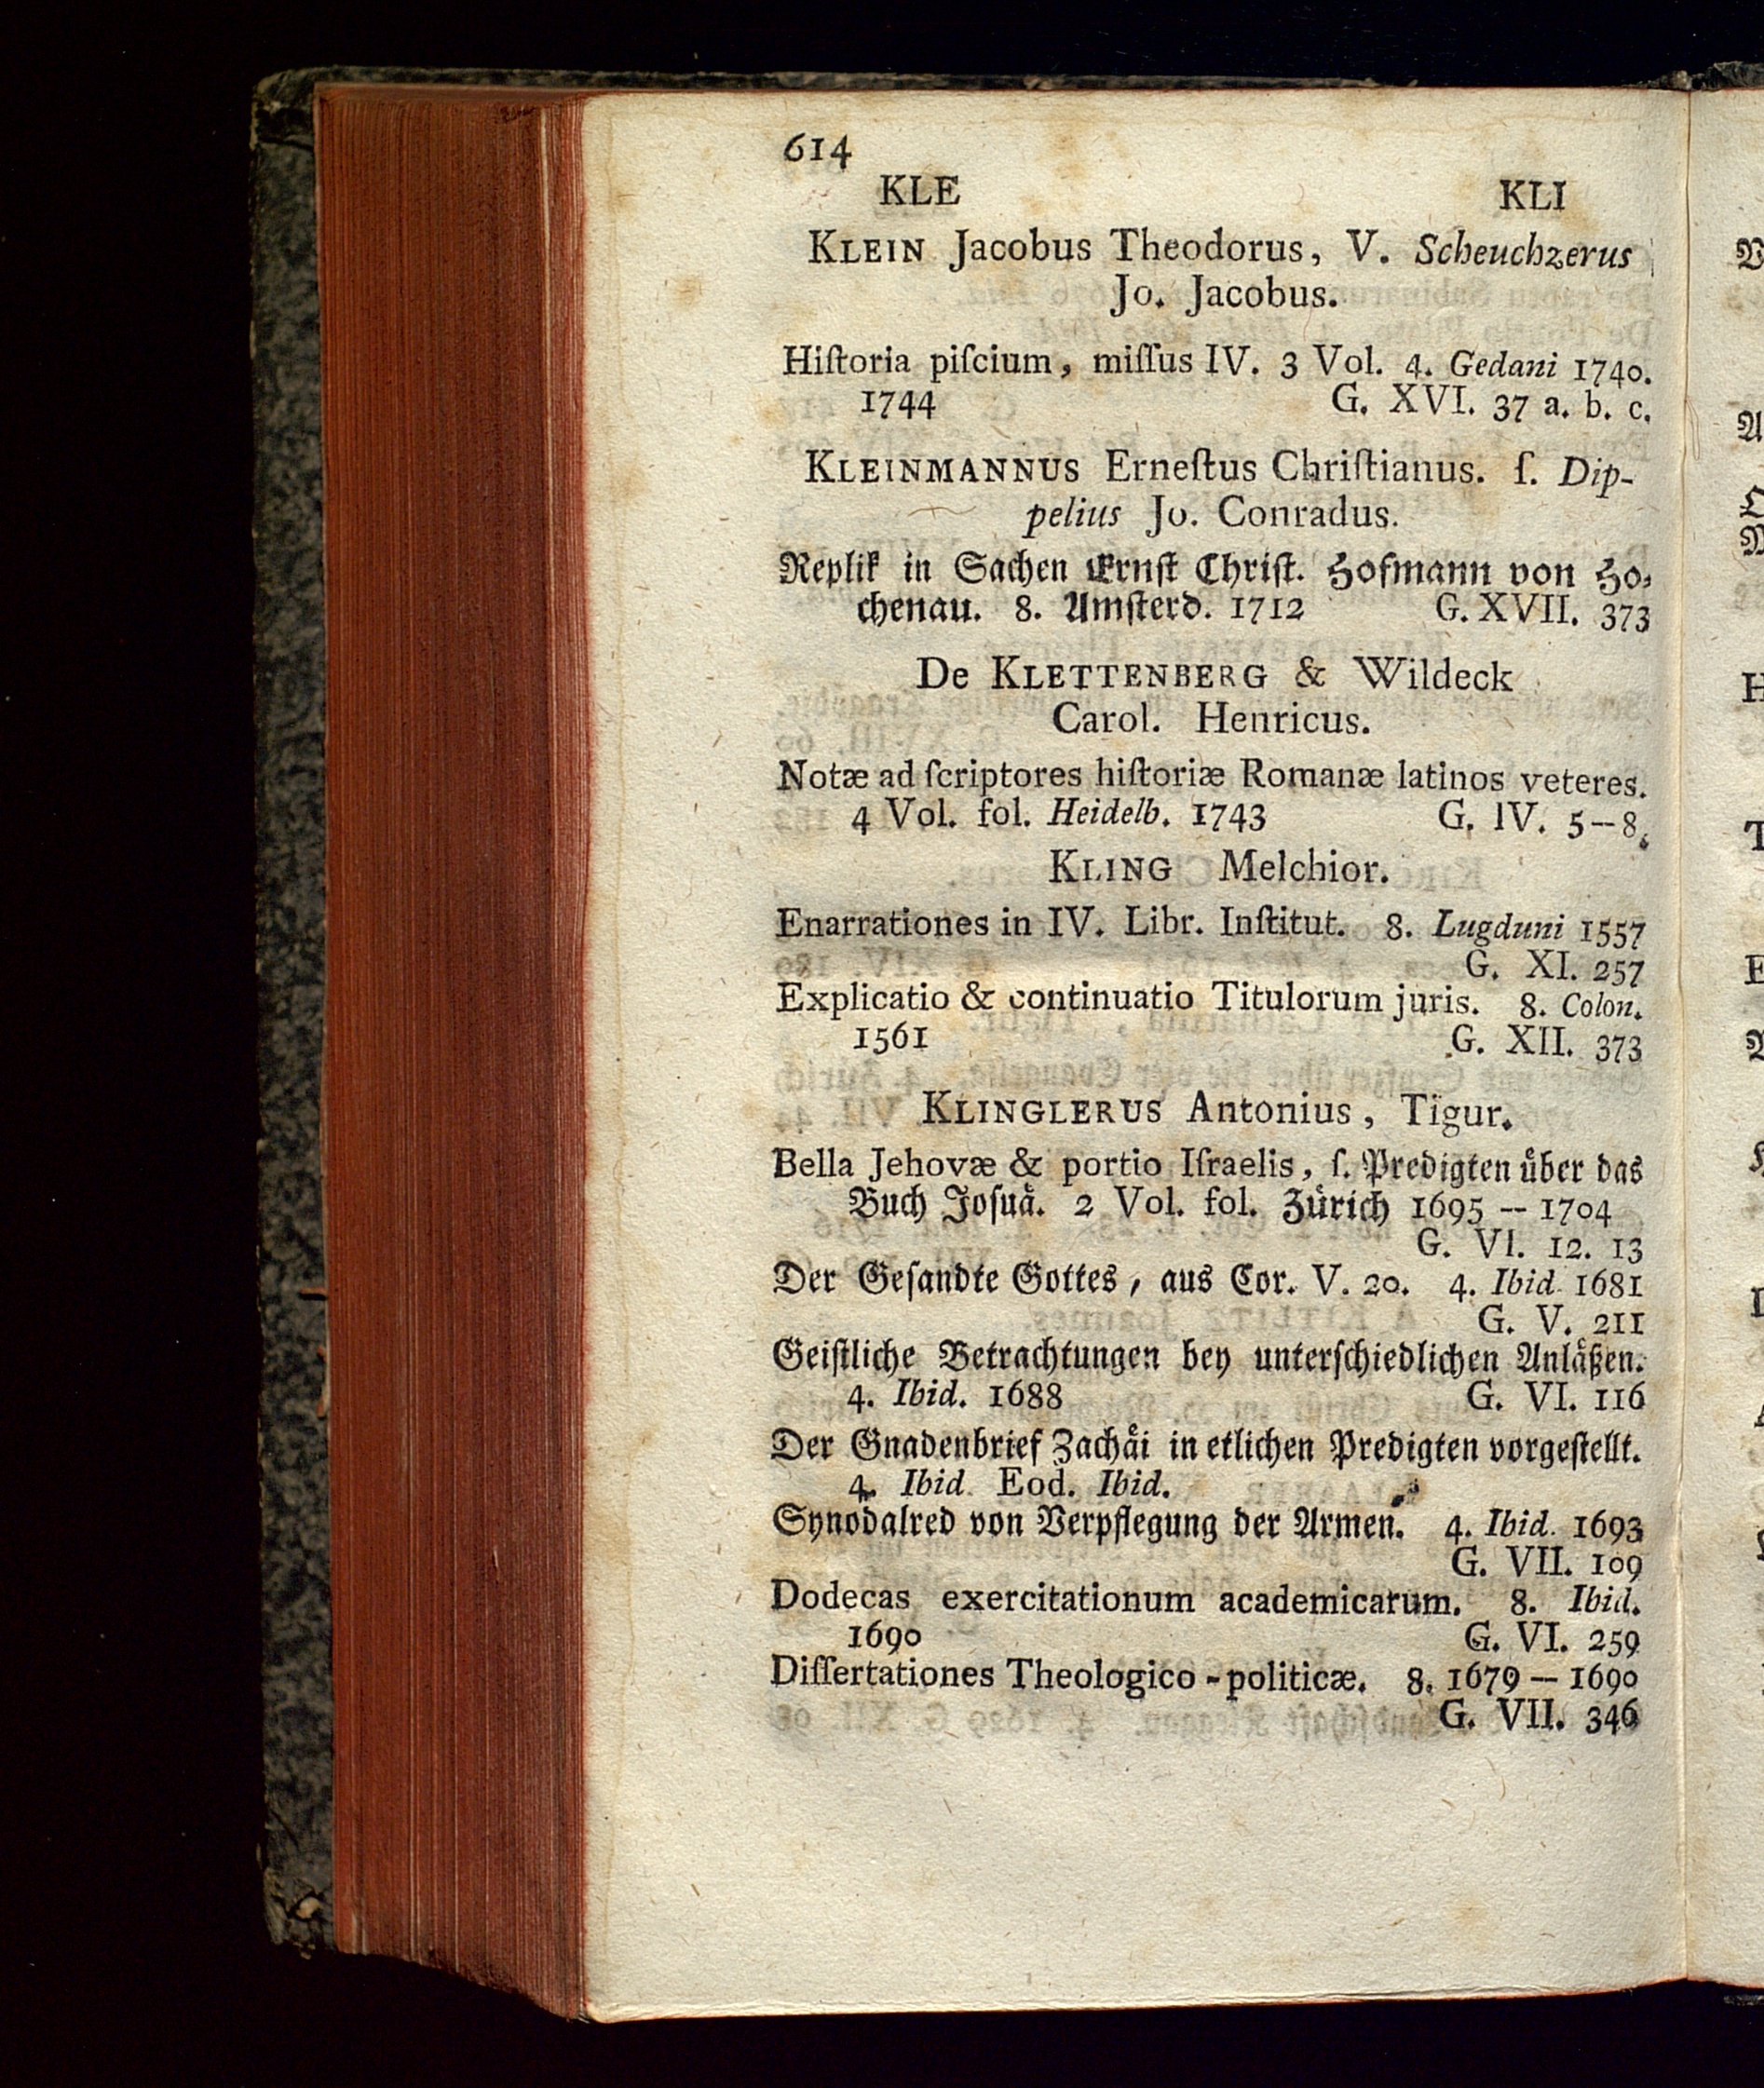 614
KLE KLI
KLEIN Jacobus Theodorus, V. Scheuchzerus
Jo. Jacobus.
Hiſtoria piſcium, miſſus IV. 3 Vol. 4. Gedani 1740.
1744 G. XVI. 37 a. b. c.
KLEINMANNUS Erneſtus Chriſtianus. ſ. Dip-
pelius Jo. Conradus.
Replik in Sachen Ernſt Chriſt. Hofmann von Ho-
chenau. 8. Amſterd. 1712 G. XVII. 373
De KLETTENBERG & Wildeck
Carol. Henricus.
Notæ ad ſcriptores hiſtoriæ Romanæ latinos veteres.
4 Vol. fol. Heidelb. 1743 G. IV. 5–8.
KLING Melchior.
Enarrationes in IV. Libr. Inſtitut. 8. Lugduni 1557
G. XI. 257
Explicatio & continuatio Titulorum juris. 8. Colon.
1561 G. XII. 373
KLINGLERUS Antonius, Tigur.
Bella Jehovæ & portio Iſraelis, ſ. Predigten über das
Buch Joſuä. 2 Vol. fol. Zürich 1695 -- 1704
G. VI. 12. 13
Der Geſandte Gottes, aus Cor. V. 20. 4. Ibid. 1681
G. V. 211
Geiſtliche Betrachtungen bey unterſchiedlichen Anläßen.
4. Ibid. 1688 G. VI. 116
Der Gnadenbrief Zachäi in etlichen Predigten vorgeſtellt.
4. Ibid. Eod. Ibid.
Synodalred von Verpflegung der Armen. 4. Ibid. 1693
G. VII. 109
Dodecas exercitationum academicarum. 8. Ibid.
1690 G. VI. 259
Diſſertationes Theologico-politicæ. 8. 1679 – 1690
G. VII. 346